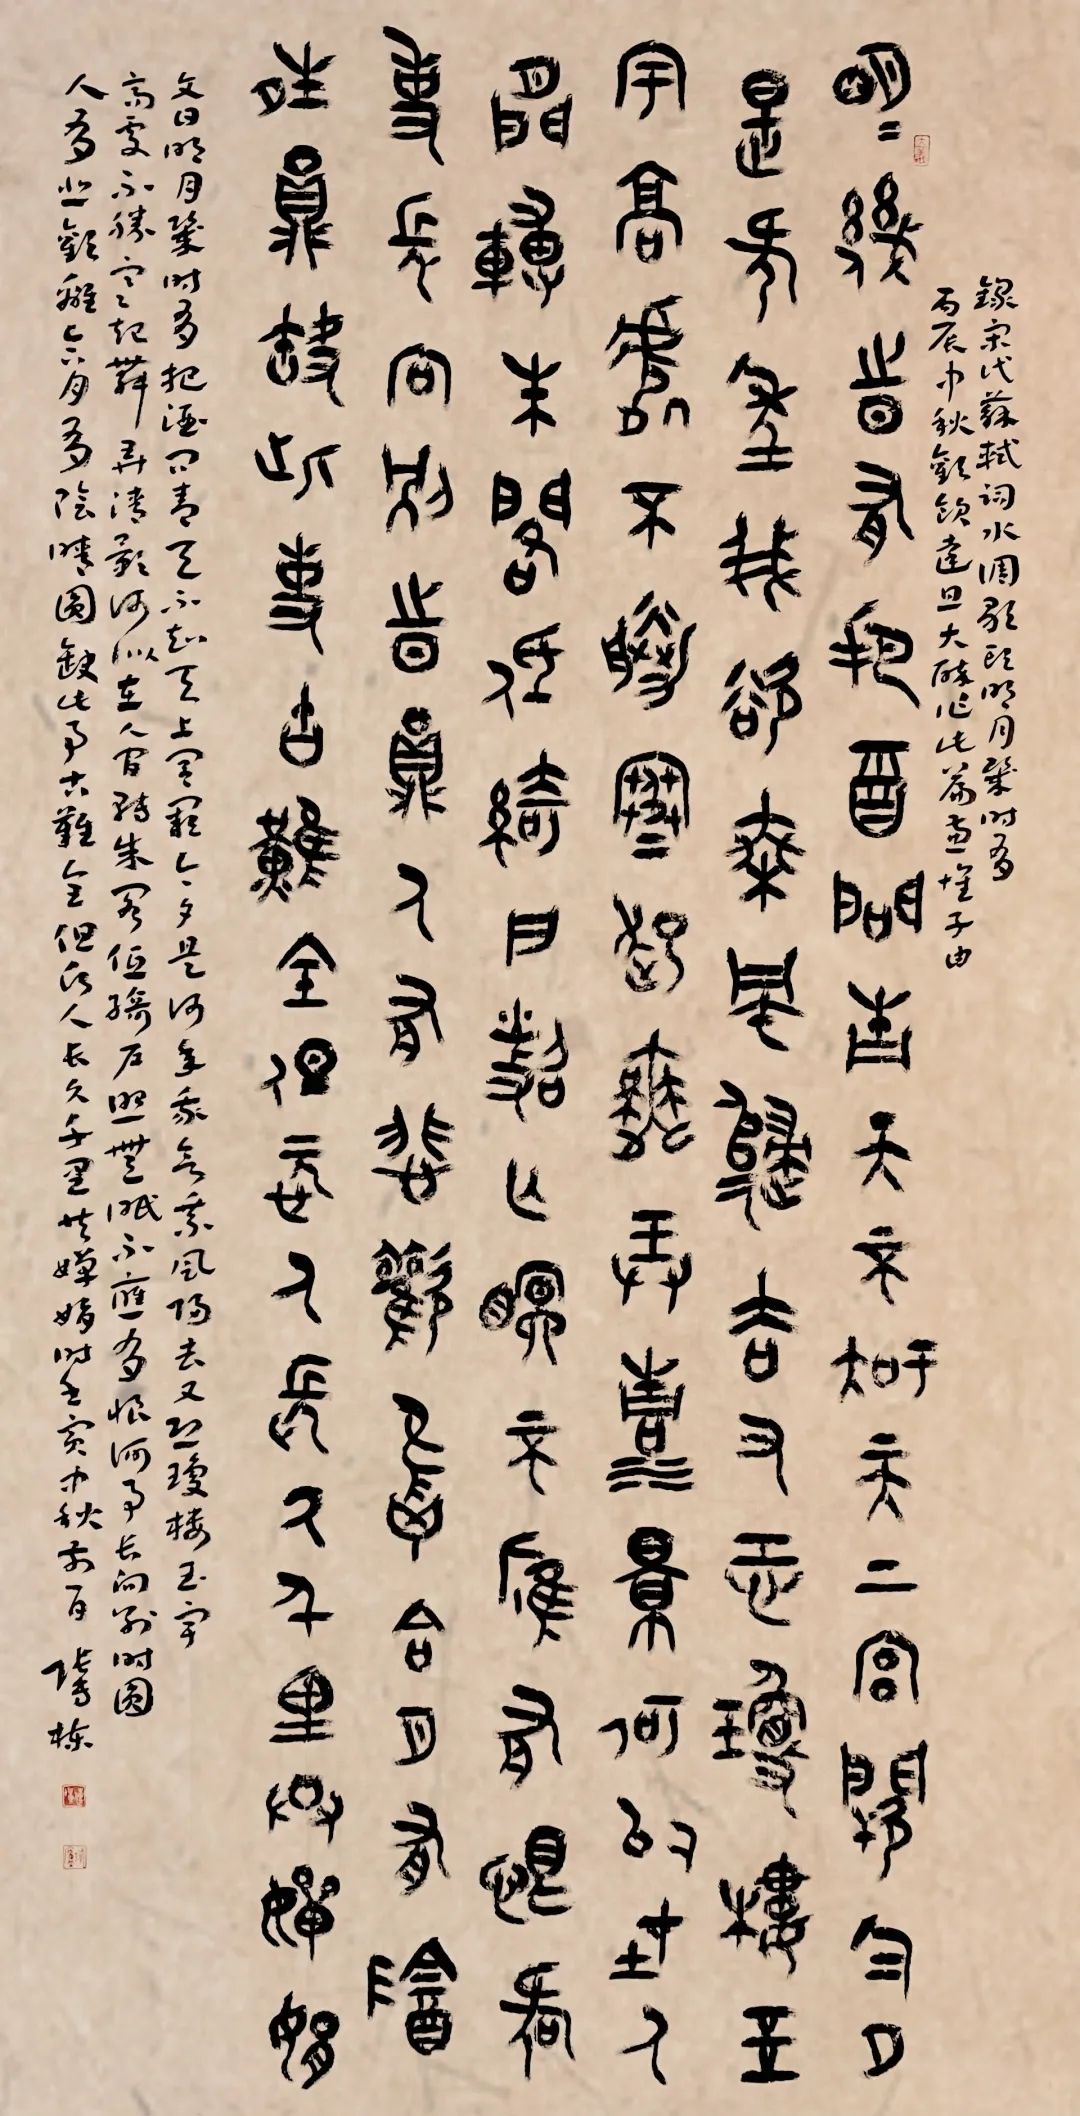 錄宋代蘇軾詞水調歌頭明月幾時有
丙辰中秋歡飲達旦大醉作此篇兼懷子由
明月幾時有把酒問青天不知天上宮闕今夕
是何年我欲乘風歸去又恐瓊樓玉
宇高處不勝寒起舞弄清影何似在人
間轉朱閣低綺戶照無眠不應有恨何
事長向別時圓人有悲歡離合月有陰
晴圓缺此事古難全但願人長久千里共嬋娟
文曰明月幾時有把酒問青天不知天上宮闕今夕是何年我欲乘風歸去又恐瓊樓玉宇
高處不勝寒起舞弄清影何似在人間轉朱閣低綺戶照無眠不應有恨何事長向別時圓
人有悲歡離合月有陰晴圓缺此事古難全但願人長久千里共嬋娟時壬寅中秋前一日 棟